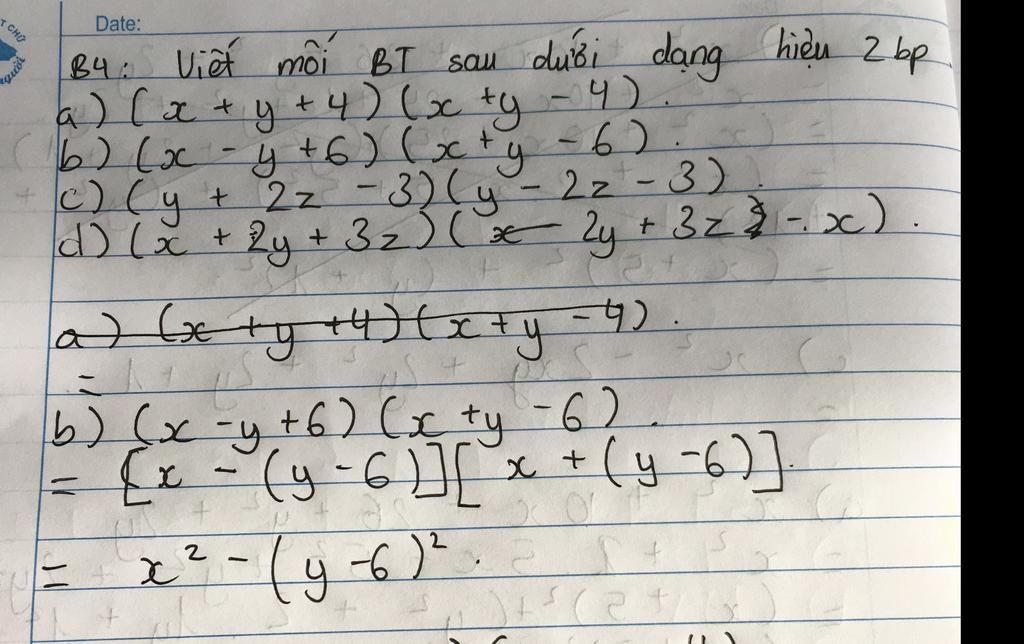 Date:
B4: Viết mỗi BT sau dưới dạng hiệu 2 bp
a) (x + y + 4)(x + y - 4).
b) (x - y + 6)(x + y - 6).
c) (y + 2z - 3)(y - 2z - 3).
d) (x + 2y + 3z)(x - 2y + 3z - x).
a) (x + y + 4)(x + y - 4).
=
b) (x - y + 6)(x + y - 6).
= [x - (y - 6)][x + (y - 6)].
= x² - (y - 6)².